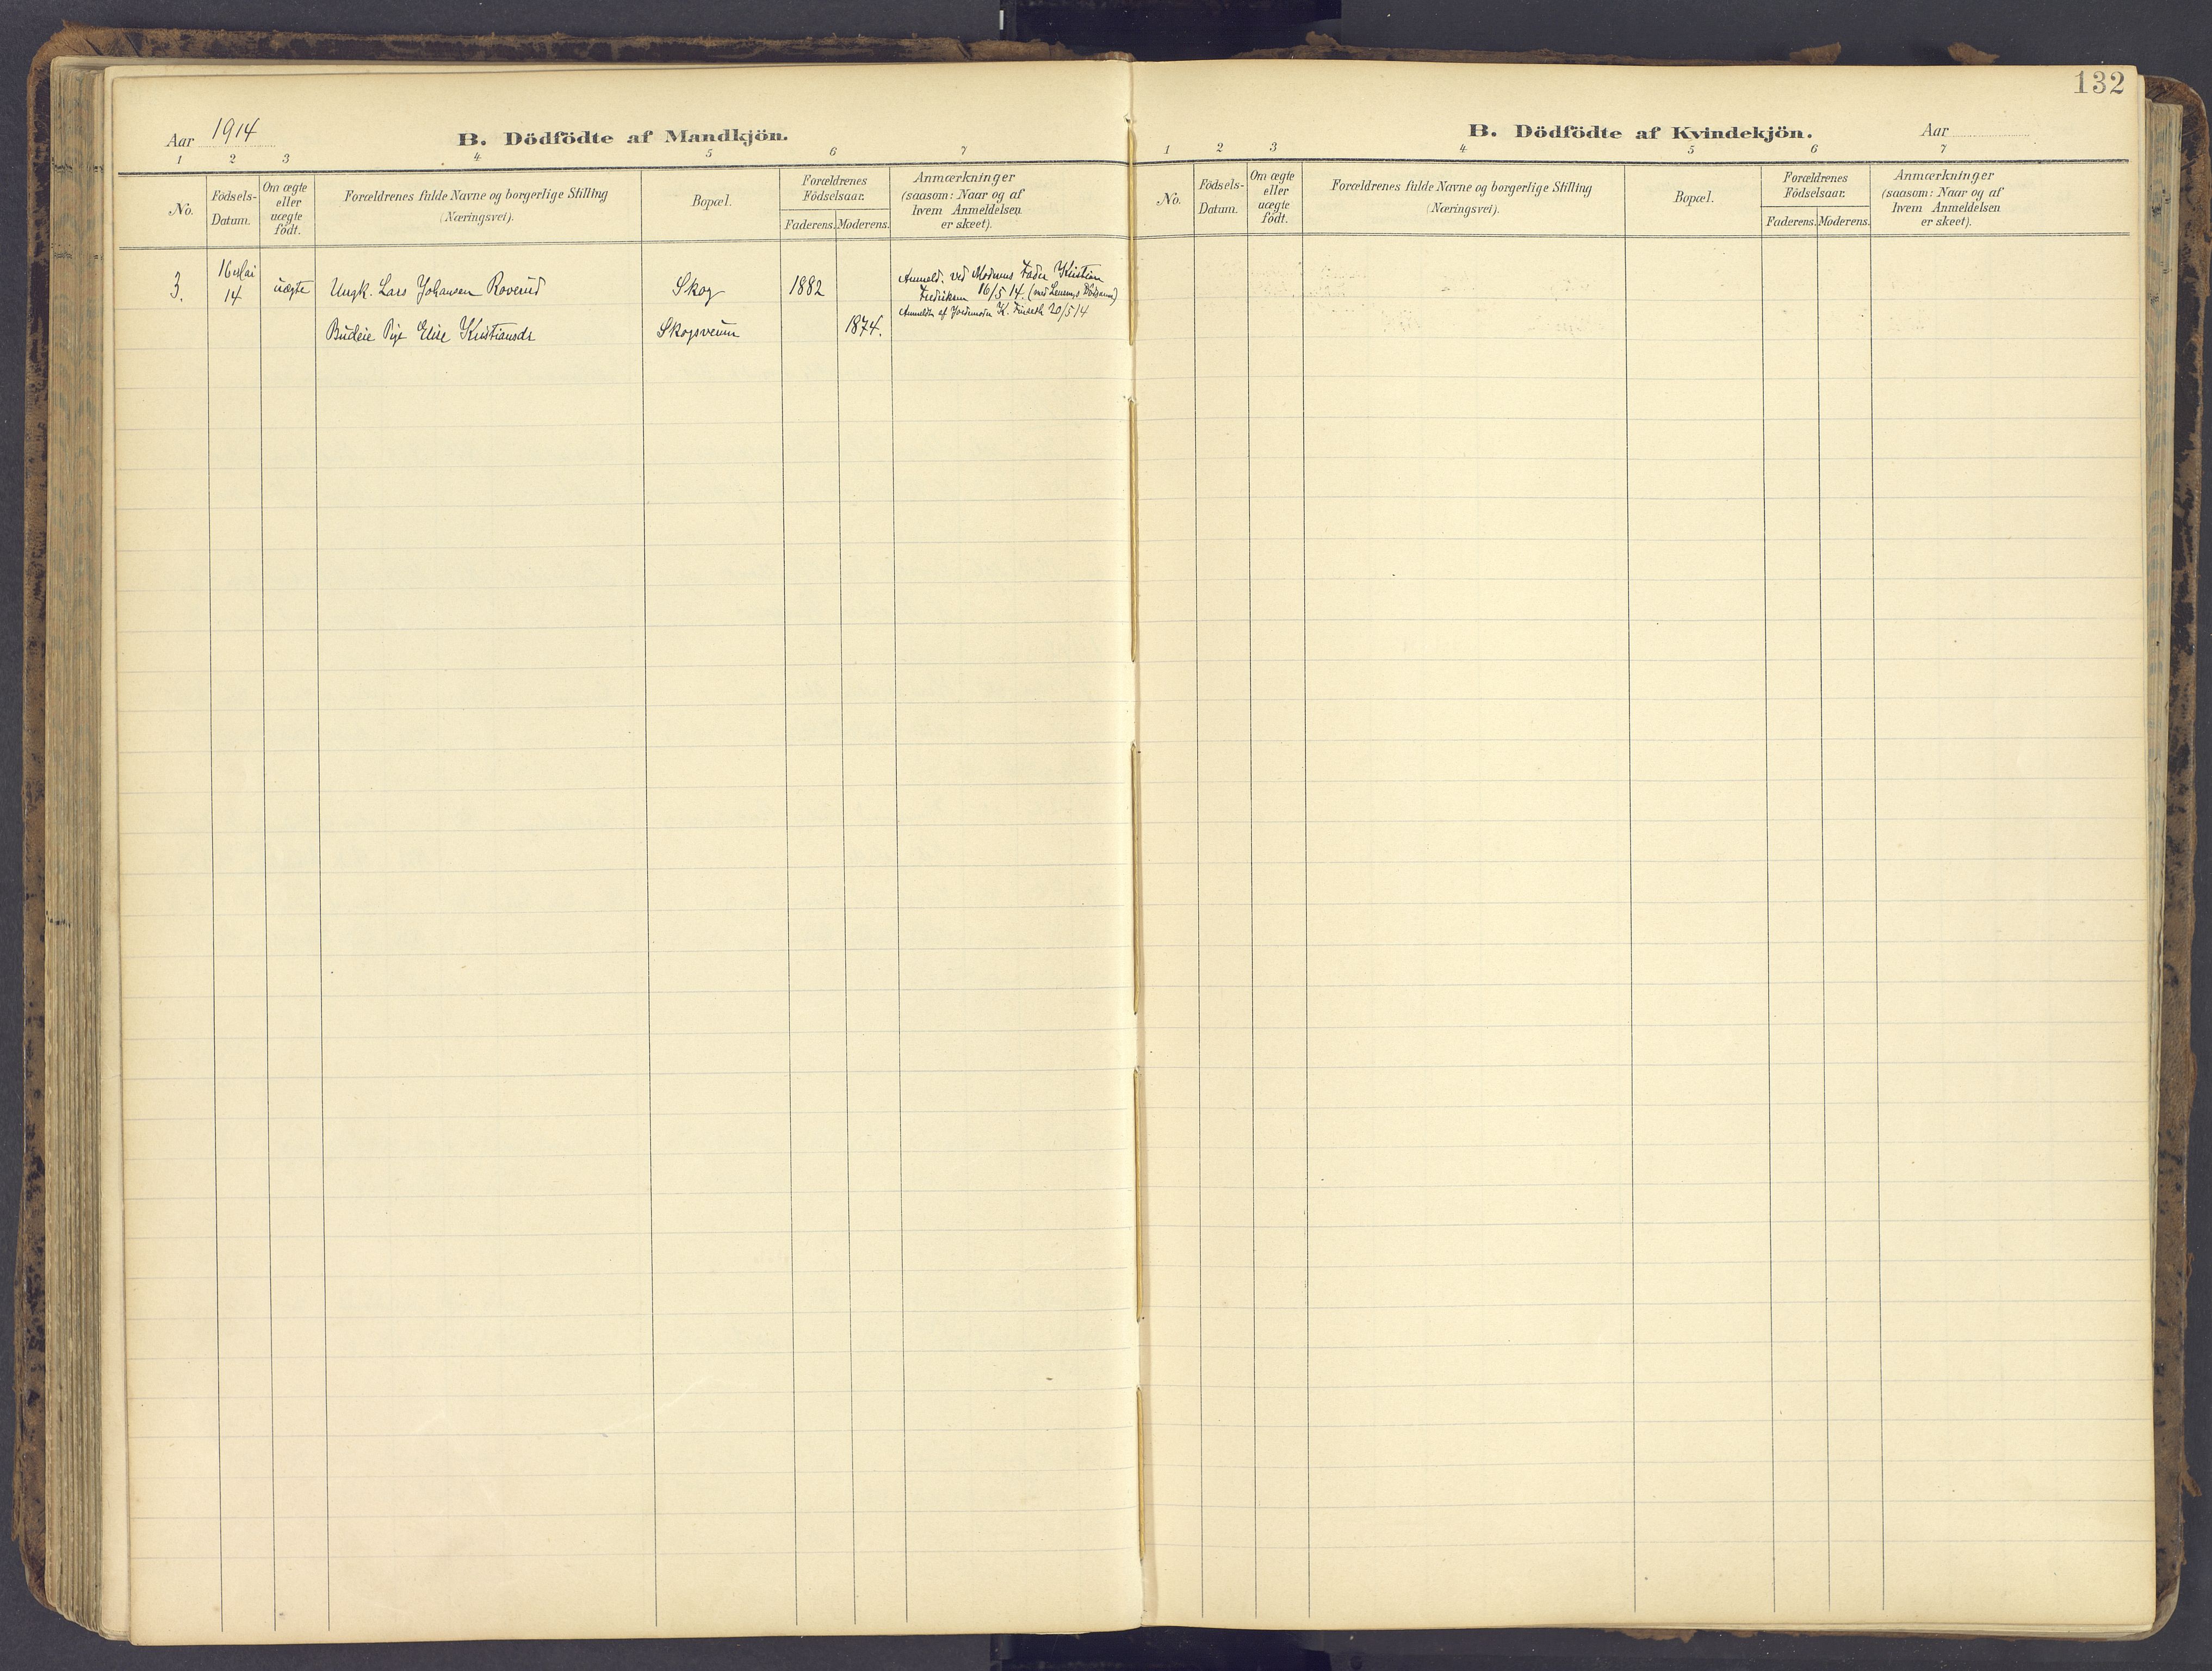 132
Aar 1914
B. Dödfödte af Mandkjön.
1 2 3 4 5 6 7
No.
Födsels-
Datum.
Om ægte
eller
uægte
födt.
Forældrenes fulde Navne og borgerlige Stilling
(Næringsvei).
Bopæl.
Forældrenes
Födselsaar.
Faderens. Moderens.
Anmærkninger
(saasom: Naar og af
hvem Anmeldelsen
er skeet).
3.
16 Mai
14
uægte
Ungk. Lars Johansen Roverud
Skog
1882
Anmeld. ved Moderens Fader Kristian
Fredriksen 16/5 14. (med Lensm.s
Anmeldt af Jordmoder K. 20/5 14
Budeie Pige Elise Kristiansdr
Skogsveum
1874.
B. Dödfödte af Kvindekjön.
Aar
1 2 3 4 5 6 7
No.
Födsels-
Datum.
Om ægte
eller
uægte
födt.
Forældrenes fulde Navne og borgerlige Stilling
(Næringsvei).
Bopæl.
Forældrenes
Födselsaar.
Faderens. Moderens.
Anmærkninger
(saasom: Naar og af
hvem Anmeldelsen
er skeet).